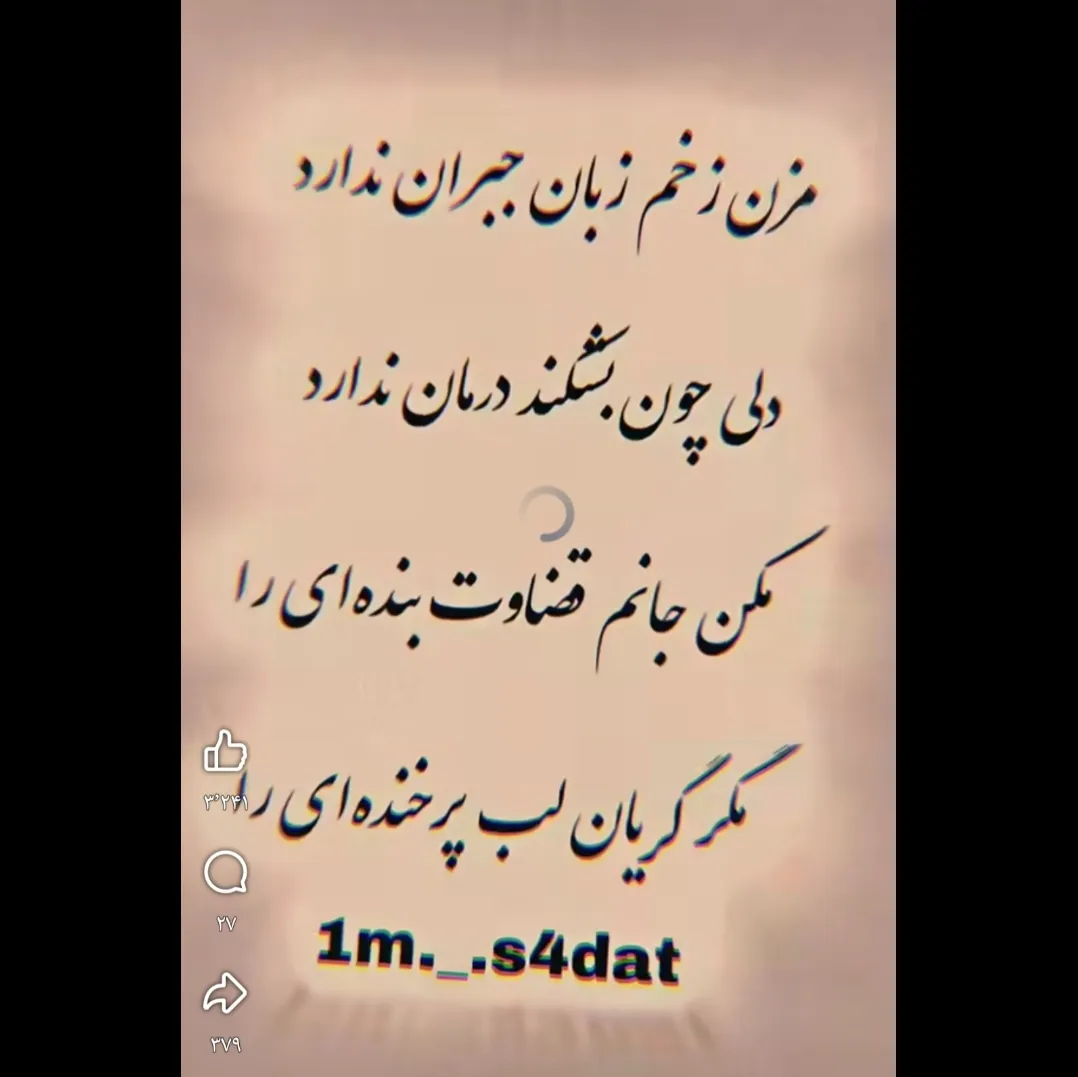 مزن زخم زبان جبران ندارد
دلی چون بشکند درمان ندارد
مکن جانم قضاوت بنده‌ای را
مگر گریان لب پرخنده‌ای را
۳٬۲۴۱
۲۷
۳۷۹
1m._.s4dat